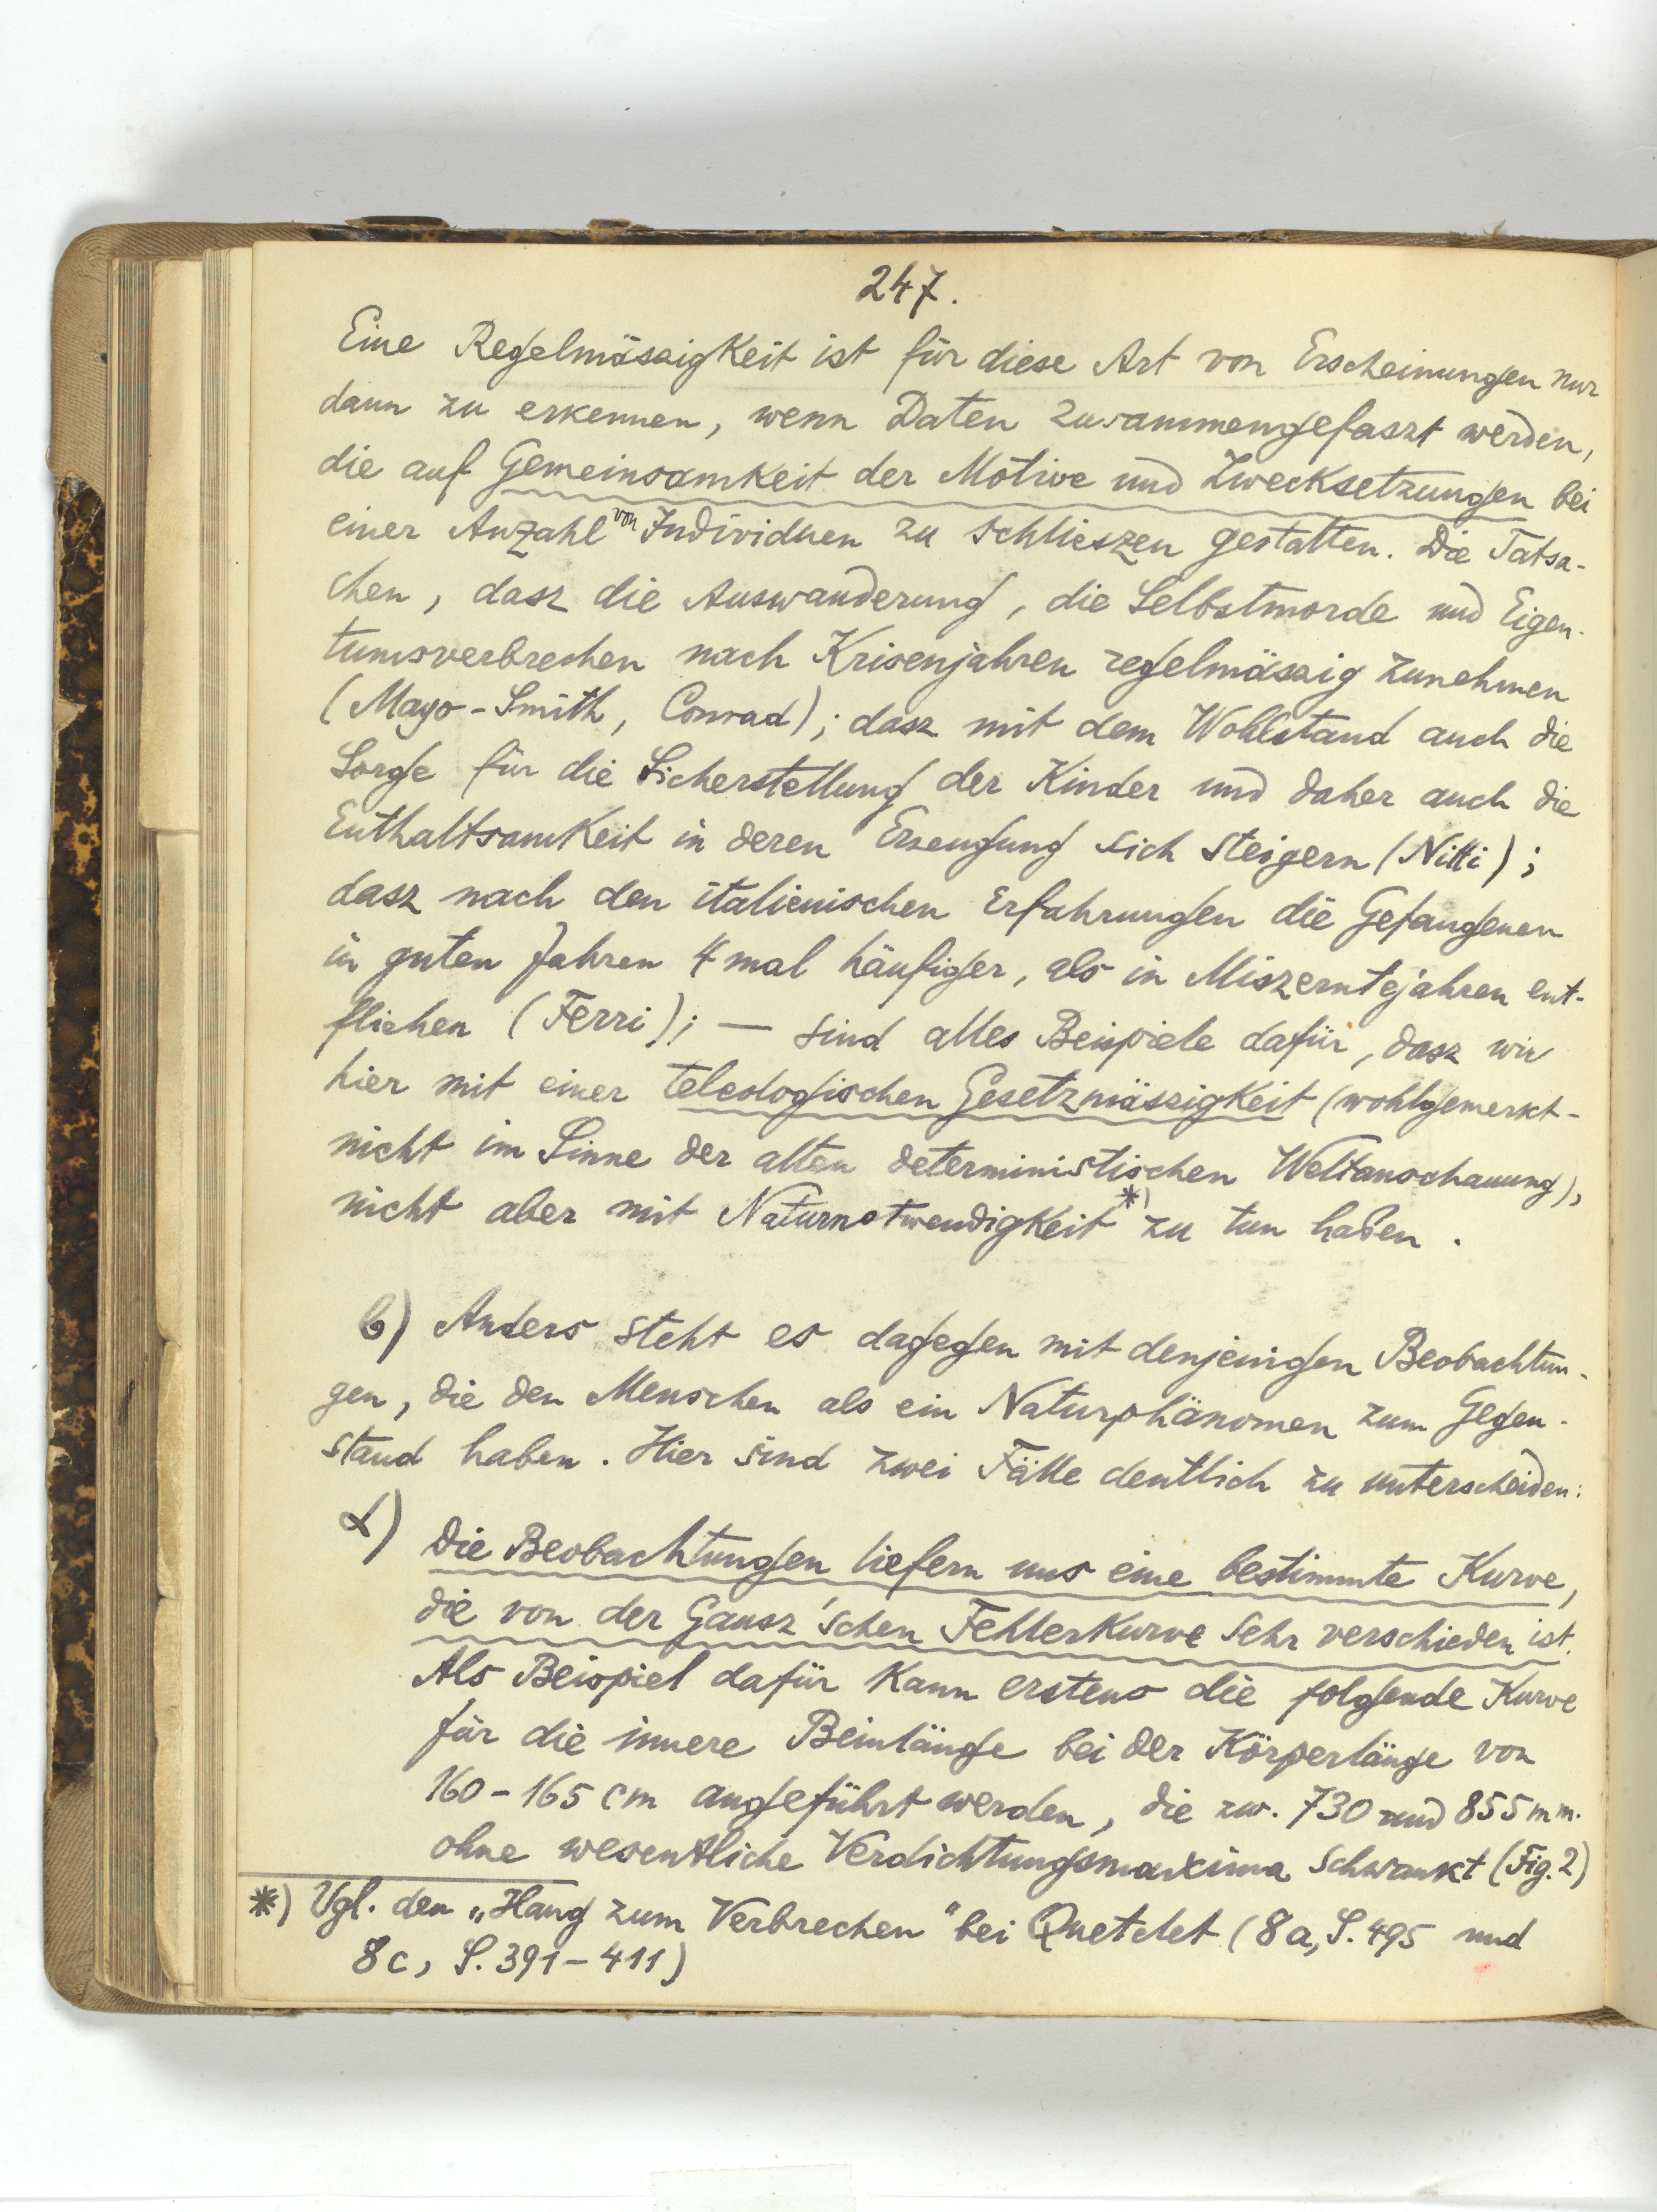 247.
Eine Regelmässigkeit ist für diese Art von Erscheinungen nur
dann zu erkennen, wenn Daten zusammengefaszt werden,
die auf Gemeinsamkeit der Motive und Zwecksetzungen bei
einer Anzahl von Individuen zu schlieszen gestatten. Die Tatsa-
chen, dasz die Auswanderung, die Selbstmorde und Eigen-
tumsverbrechen nach Krisenjahren regelmässig zunehmen
(Mayo-Smith, Conrad); dasz mit dem Wohlstand auch die
Sorge für die Sicherstellung der Kinder und daher auch die
Enthaltsamkeit in deren Erzeugung sich steigern (Nitti);
dasz nach den italienischen Erfahrungen die Gefangenen
in guten Jahren 4 mal häufiger, als in Miszerntejahren ent-
fliehen (Ferri); — sind alles Beispiele dafür, dasz wir
hier mit einer teleologischen Gesetzmässigkeit (wohlgemerkt-
nicht im Sinne der alten deterministischen Weltanschauung),
nicht aber mit Naturnotwendigkeit *) zu tun haben.
b) Anders steht es dagegen mit denjenigen Beobachtun-
gen, die den Menschen als ein Naturphänomen zum Gegen-
stand haben. Hier sind zwei Fälle deutlich zu unterscheiden:
α) Die Beobachtungen liefern uns eine bestimmte Kurve,
die von der Gausz'schen Fehlerkurve sehr verschieden ist.
Als Beispiel dafür kann erstens die folgende Kurve
für die innere Beinlänge bei der Körperlänge von
160-165 cm angeführt werden, die zw. 730 und 855 mm.
ohne wesentliche Verdichtungsmaxima schwankt (Fig. 2)
*) Vgl. den „Hang zum Verbrechen" bei Quetelet (8a, S. 495 und
8c, S. 391-411)